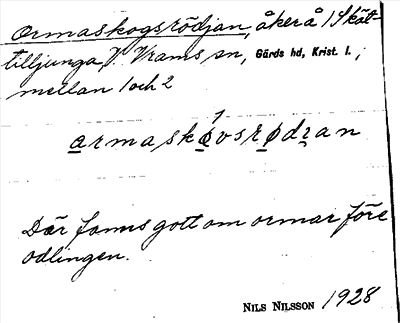 Ormaskogsrödjan, åker å 1 Sköt-
tilljunga V. Vrams sn, Gärds hd, Krist. l.,
mellan 1 och 2
armaskǿvsrødɿan
Där fanns gott om ormar före
odlingen.
NILS NILSSON 1928